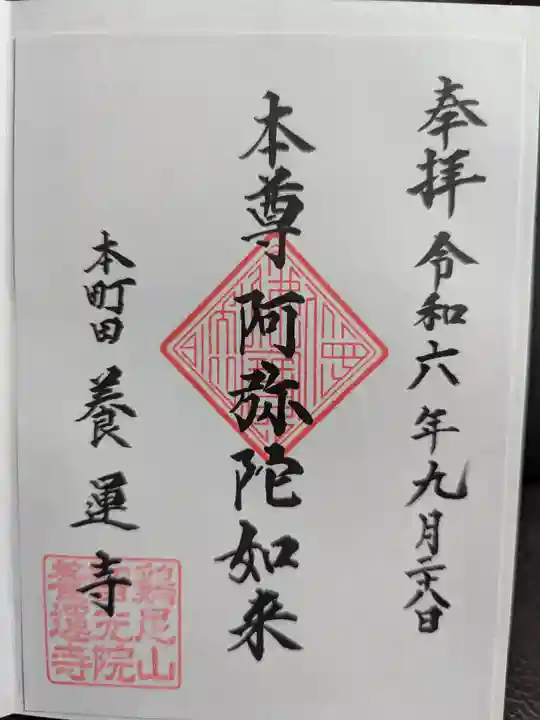 奉拝 令和六年九月二十八日
本尊 阿弥陀如来
本町田 養運寺
鶏足山
養運寺